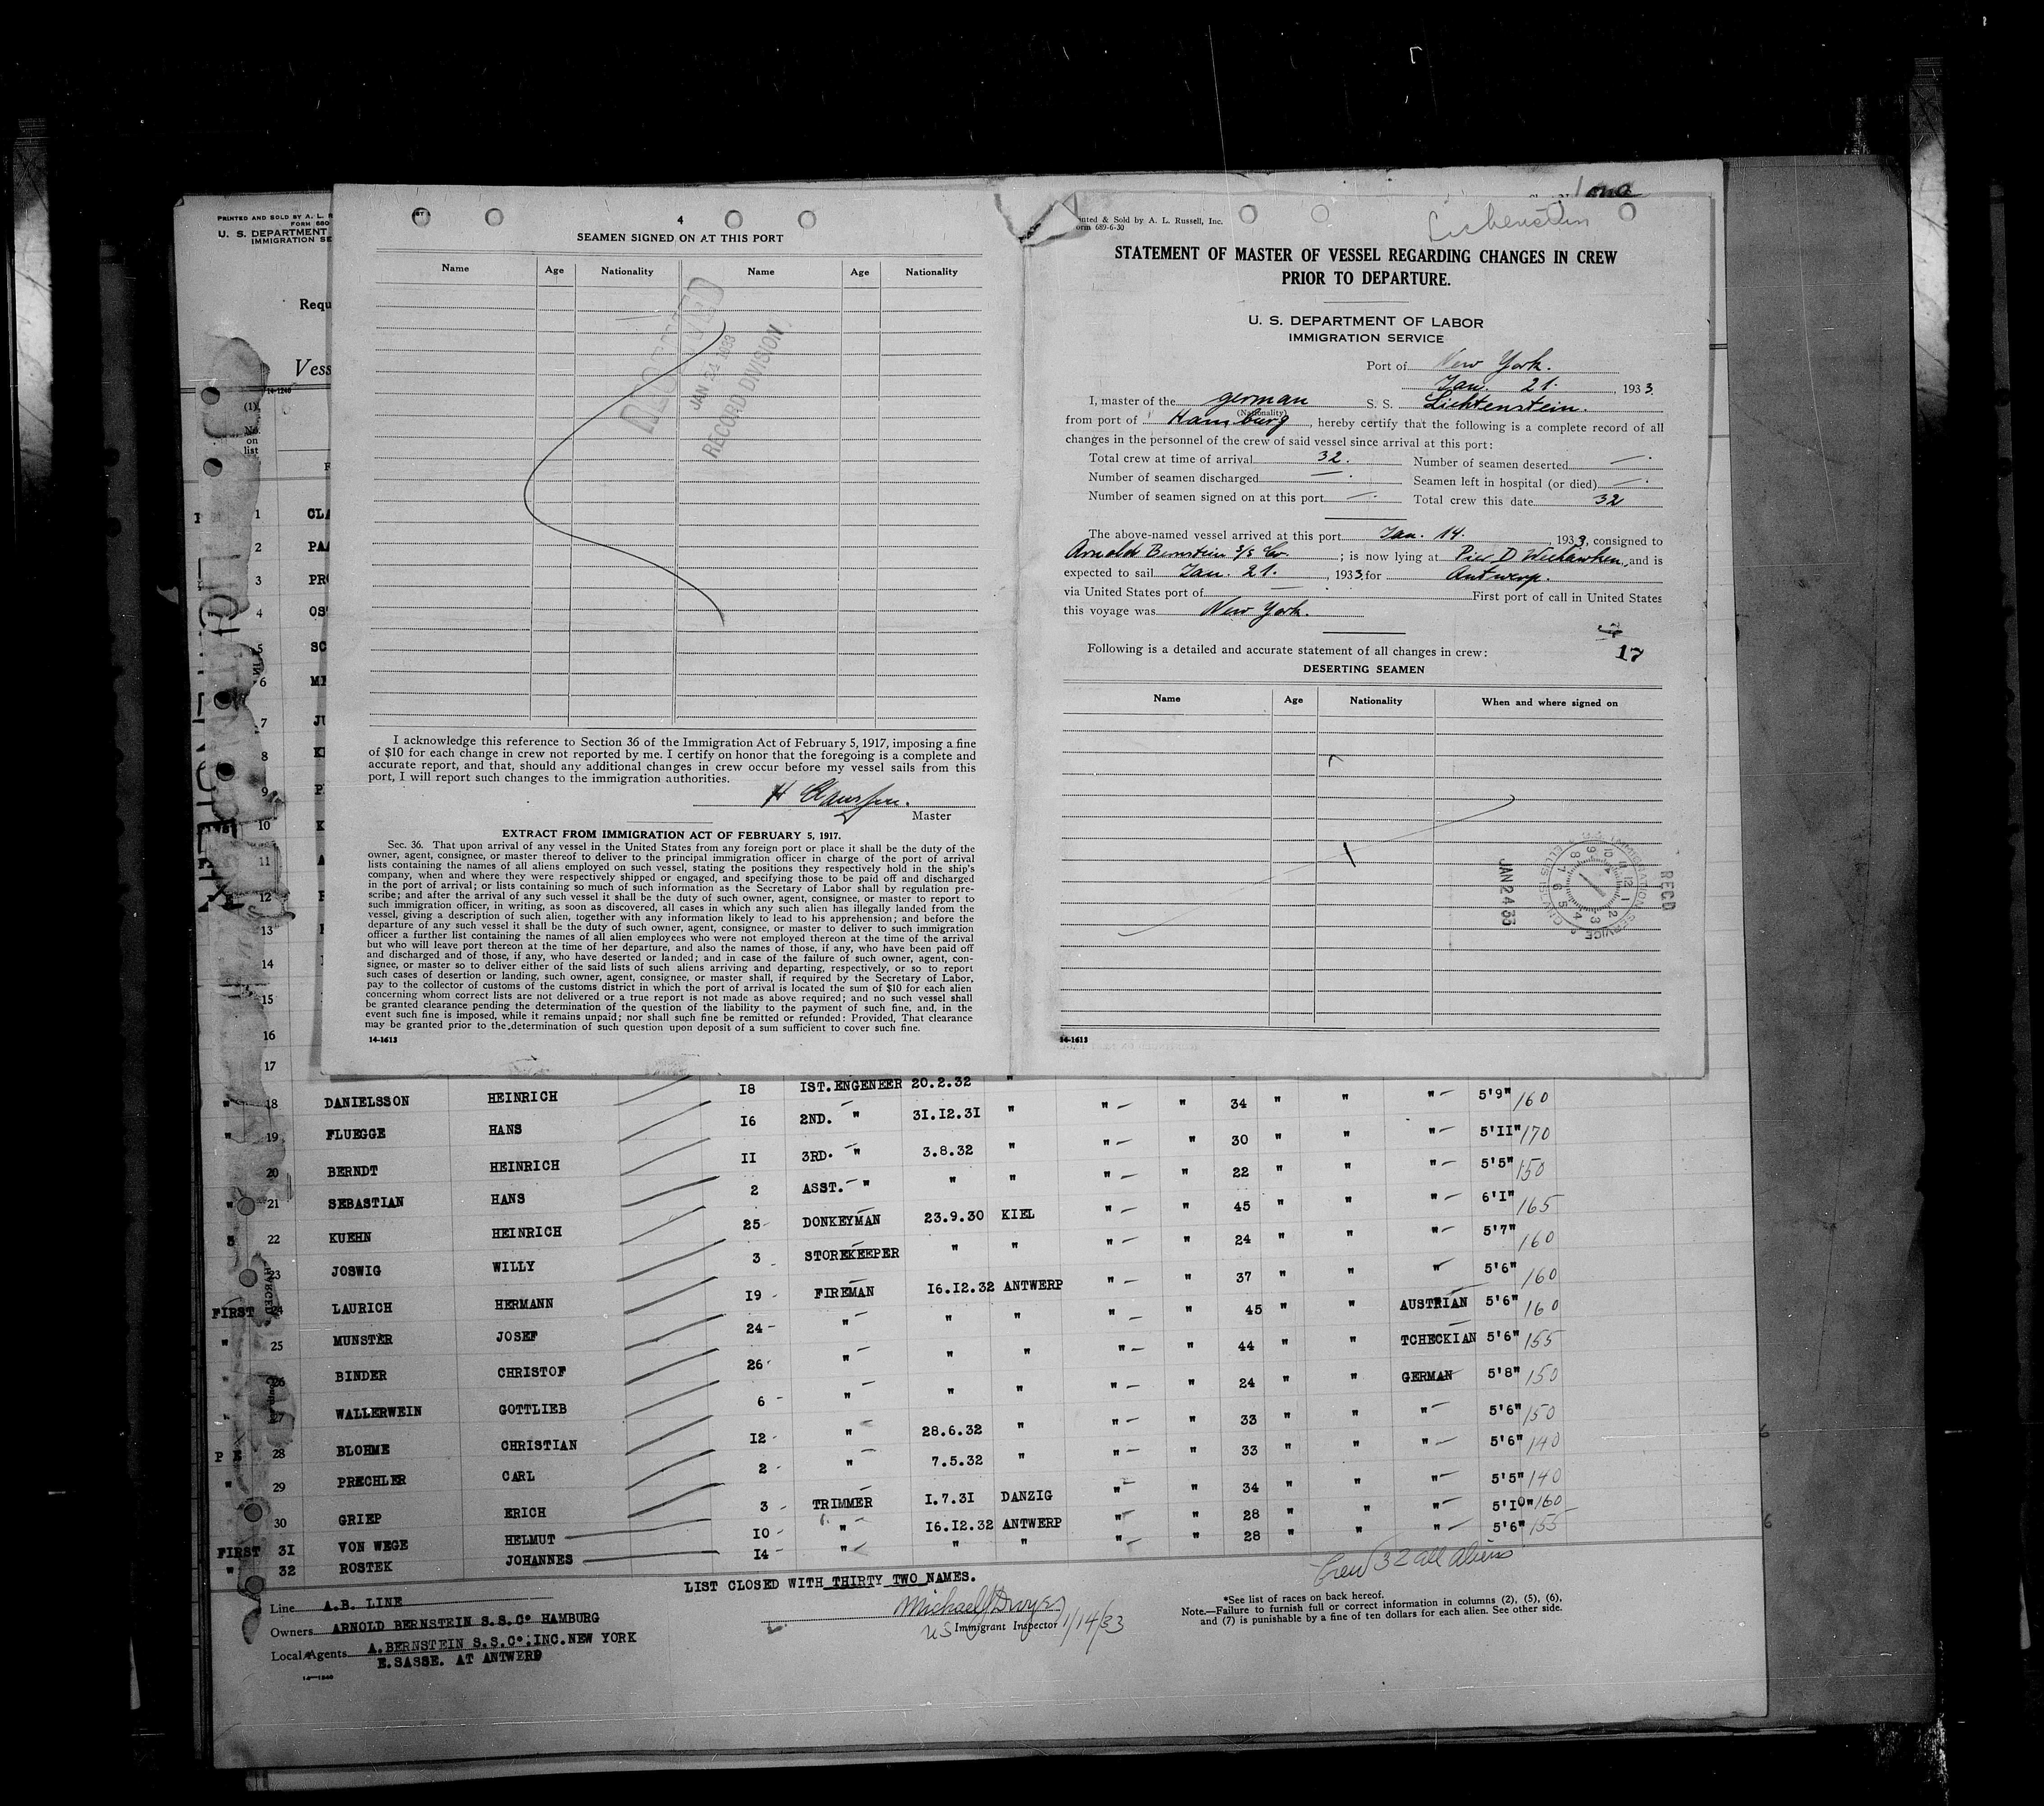 PRINTED AND SOLD BY A. L. R
FORM 680
U. S. DEPARTMENT
IMMIGRATION SE
Requ
Vess
14-1240
(1)
No.
on
list
1 CLA
2 PAA
3 PRO
4 OS
5 SC
6 ME
7 JU
8 K
9 P
10 K
11 A
12
13
14
15
16
17
4
SEAMEN SIGNED ON AT THIS PORT
Name Age Nationality Name Age Nationality
RECEIVED
JAN 24 1933
RECORD DIVISION
I acknowledge this reference to Section 36 of the Immigration Act of February 5, 1917, imposing a fine
of $10 for each change in crew not reported by me. I certify on honor that the foregoing is a complete and
accurate report, and that, should any additional changes in crew occur before my vessel sails from this
port, I will report such changes to the immigration authorities.
H
Master
EXTRACT FROM IMMIGRATION ACT OF FEBRUARY 5, 1917.
Sec. 36. That upon arrival of any vessel in the United States from any foreign port or place it shall be the duty of the
owner, agent, consignee, or master thereof to deliver to the principal immigration officer in charge of the port of arrival
lists containing the names of all aliens employed on such vessel, stating the positions they respectively hold in the ship's
company, when and where they were respectively shipped or engaged, and specifying those to be paid off and discharged
in the port of arrival; or lists containing so much of such information as the Secretary of Labor shall by regulation pre-
scribe; and after the arrival of any such vessel it shall be the duty of such owner, agent, consignee, or master to report to
such immigration officer, in writing, as soon as discovered, all cases in which any such alien has illegally landed from the
vessel, giving a description of such alien, together with any information likely to lead to his apprehension; and before the
departure of any such vessel it shall be the duty of such owner, agent, consignee, or master to deliver to such immigration
officer a further list containing the names of all alien employees who were not employed thereon at the time of the arrival
but who will leave port thereon at the time of her departure, and also the names of those, if any, who have been paid off
and discharged and of those, if any, who have deserted or landed; and in case of the failure of such owner, agent, con-
signee, or master so to deliver either of the said lists of such aliens arriving and departing, respectively, or so to report
such cases of desertion or landing, such owner, agent, consignee, or master shall, if required by the Secretary of Labor,
pay to the collector of customs of the customs district in which the port of arrival is located the sum of $10 for each alien
concerning whom correct lists are not delivered or a true report is not made as above required; and no such vessel shall
be granted clearance pending the determination of the question of the liability to the payment of such fine, and, in the
event such fine is imposed, while it remains unpaid; nor shall such fine be remitted or refunded: Provided, That clearance
may be granted prior to the determination of such question upon deposit of a sum sufficient to cover such fine.
14-1613
inted & Sold by A. L. Russell, Inc.
orm 689-6-30
STATEMENT OF MASTER OF VESSEL REGARDING CHANGES IN CREW
PRIOR TO DEPARTURE.
U. S. DEPARTMENT OF LABOR
IMMIGRATION SERVICE
Port of New York.
Jan. 21. , 1933.
I, master of the german S. S. Lichtenstein.
(Nationality)
from port of Hamburg, hereby certify that the following is a complete record of all
changes in the personnel of the crew of said vessel since arrival at this port:
Total crew at time of arrival 32. Number of seamen deserted —.
Number of seamen discharged —. Seamen left in hospital (or died) —.
Number of seamen signed on at this port —. Total crew this date 32
The above-named vessel arrived at this port Jan. 14. , 1933, consigned to
Arnold Bernstein S/S Co. ; is now lying at Pier D Weehawken, and is
expected to sail Jan. 21. , 1933, for Antwerp.
via United States port of — First port of call in United States
this voyage was New York.
17
Following is a detailed and accurate statement of all changes in crew:
DESERTING SEAMEN
Name Age Nationality When and where signed on
RECD
JAN 24 33
U.S. IMMIGRATION SERVICE
ELLIS ISLAND
14-1613
18 DANIELSSON HEINRICH 18 IST.ENGENEER 20.2.32 " "— " 34 " " "— 5'9" 160
" 19 FLUEGGE HANS 16 2ND. " 31.12.31 " "— " 30 " " "— 5'11" 170
20 BERNDT HEINRICH II 3RD. " 3.8.32 " "— " 22 " " "— 5'5" 150
" 21 SEBASTIAN HANS 2 ASST. " " " "— " 45 " " "— 6'1" 165
22 KUEHN HEINRICH 25 DONKEYMAN 23.9.30 KIEL "— " 24 " " "— 5'7" 160
23 JOSWIG WILLY 3 STOREKEEPER " " "— " 37 " " " 5'6" 160
FIRST 24 LAURICH HERMANN 19 FIREMAN 16.12.32 ANTWERP "— " 45 " " AUSTRIAN 5'6" 160
" 25 MUNSTER JOSEF 24 " " " "— " 44 " " TCHECKIAN 5'6" 155
26 BINDER CHRISTOF 26 " " " "— " 24 " " GERMAN 5'8" 150
" 27 WALLERWEIN GOTTLIEB 6 " " " "— " 33 " " "— 5'6" 150
28 BLOHME CHRISTIAN 12 " 28.6.32 " "— " 33 " " "— 5'6" 140
" 29 PRECHLER CARL 2 " 7.5.32 " "— " 34 " " "— 5'5" 140
30 GRIEP ERICH 3 TRIMMER 1.7.31 DANZIG " " 28 " " "— 5'10" 160
FIRST 31 VON WEGE HELMUT 10 " 16.12.32 ANTWERP " " 28 " " "— 5'6" 155
" 32 ROSTEK JOHANNES 14 " " "
LIST CLOSED WITH THIRTY TWO NAMES.
Crew 32 all aliens
Line A.B. LINE
Owners ARNOLD BERNSTEIN S.S.Co HAMBURG
Local Agents A.BERNSTEIN S.S.Co.INC.NEW YORK
E.SASSE. AT ANTWERP
14—1240
Michael J Dwyer
US Immigrant Inspector 1/14/33
*See list of races on back hereof.
Note.—Failure to furnish full or correct information in columns (2), (5), (6),
and (7) is punishable by a fine of ten dollars for each alien. See other side.